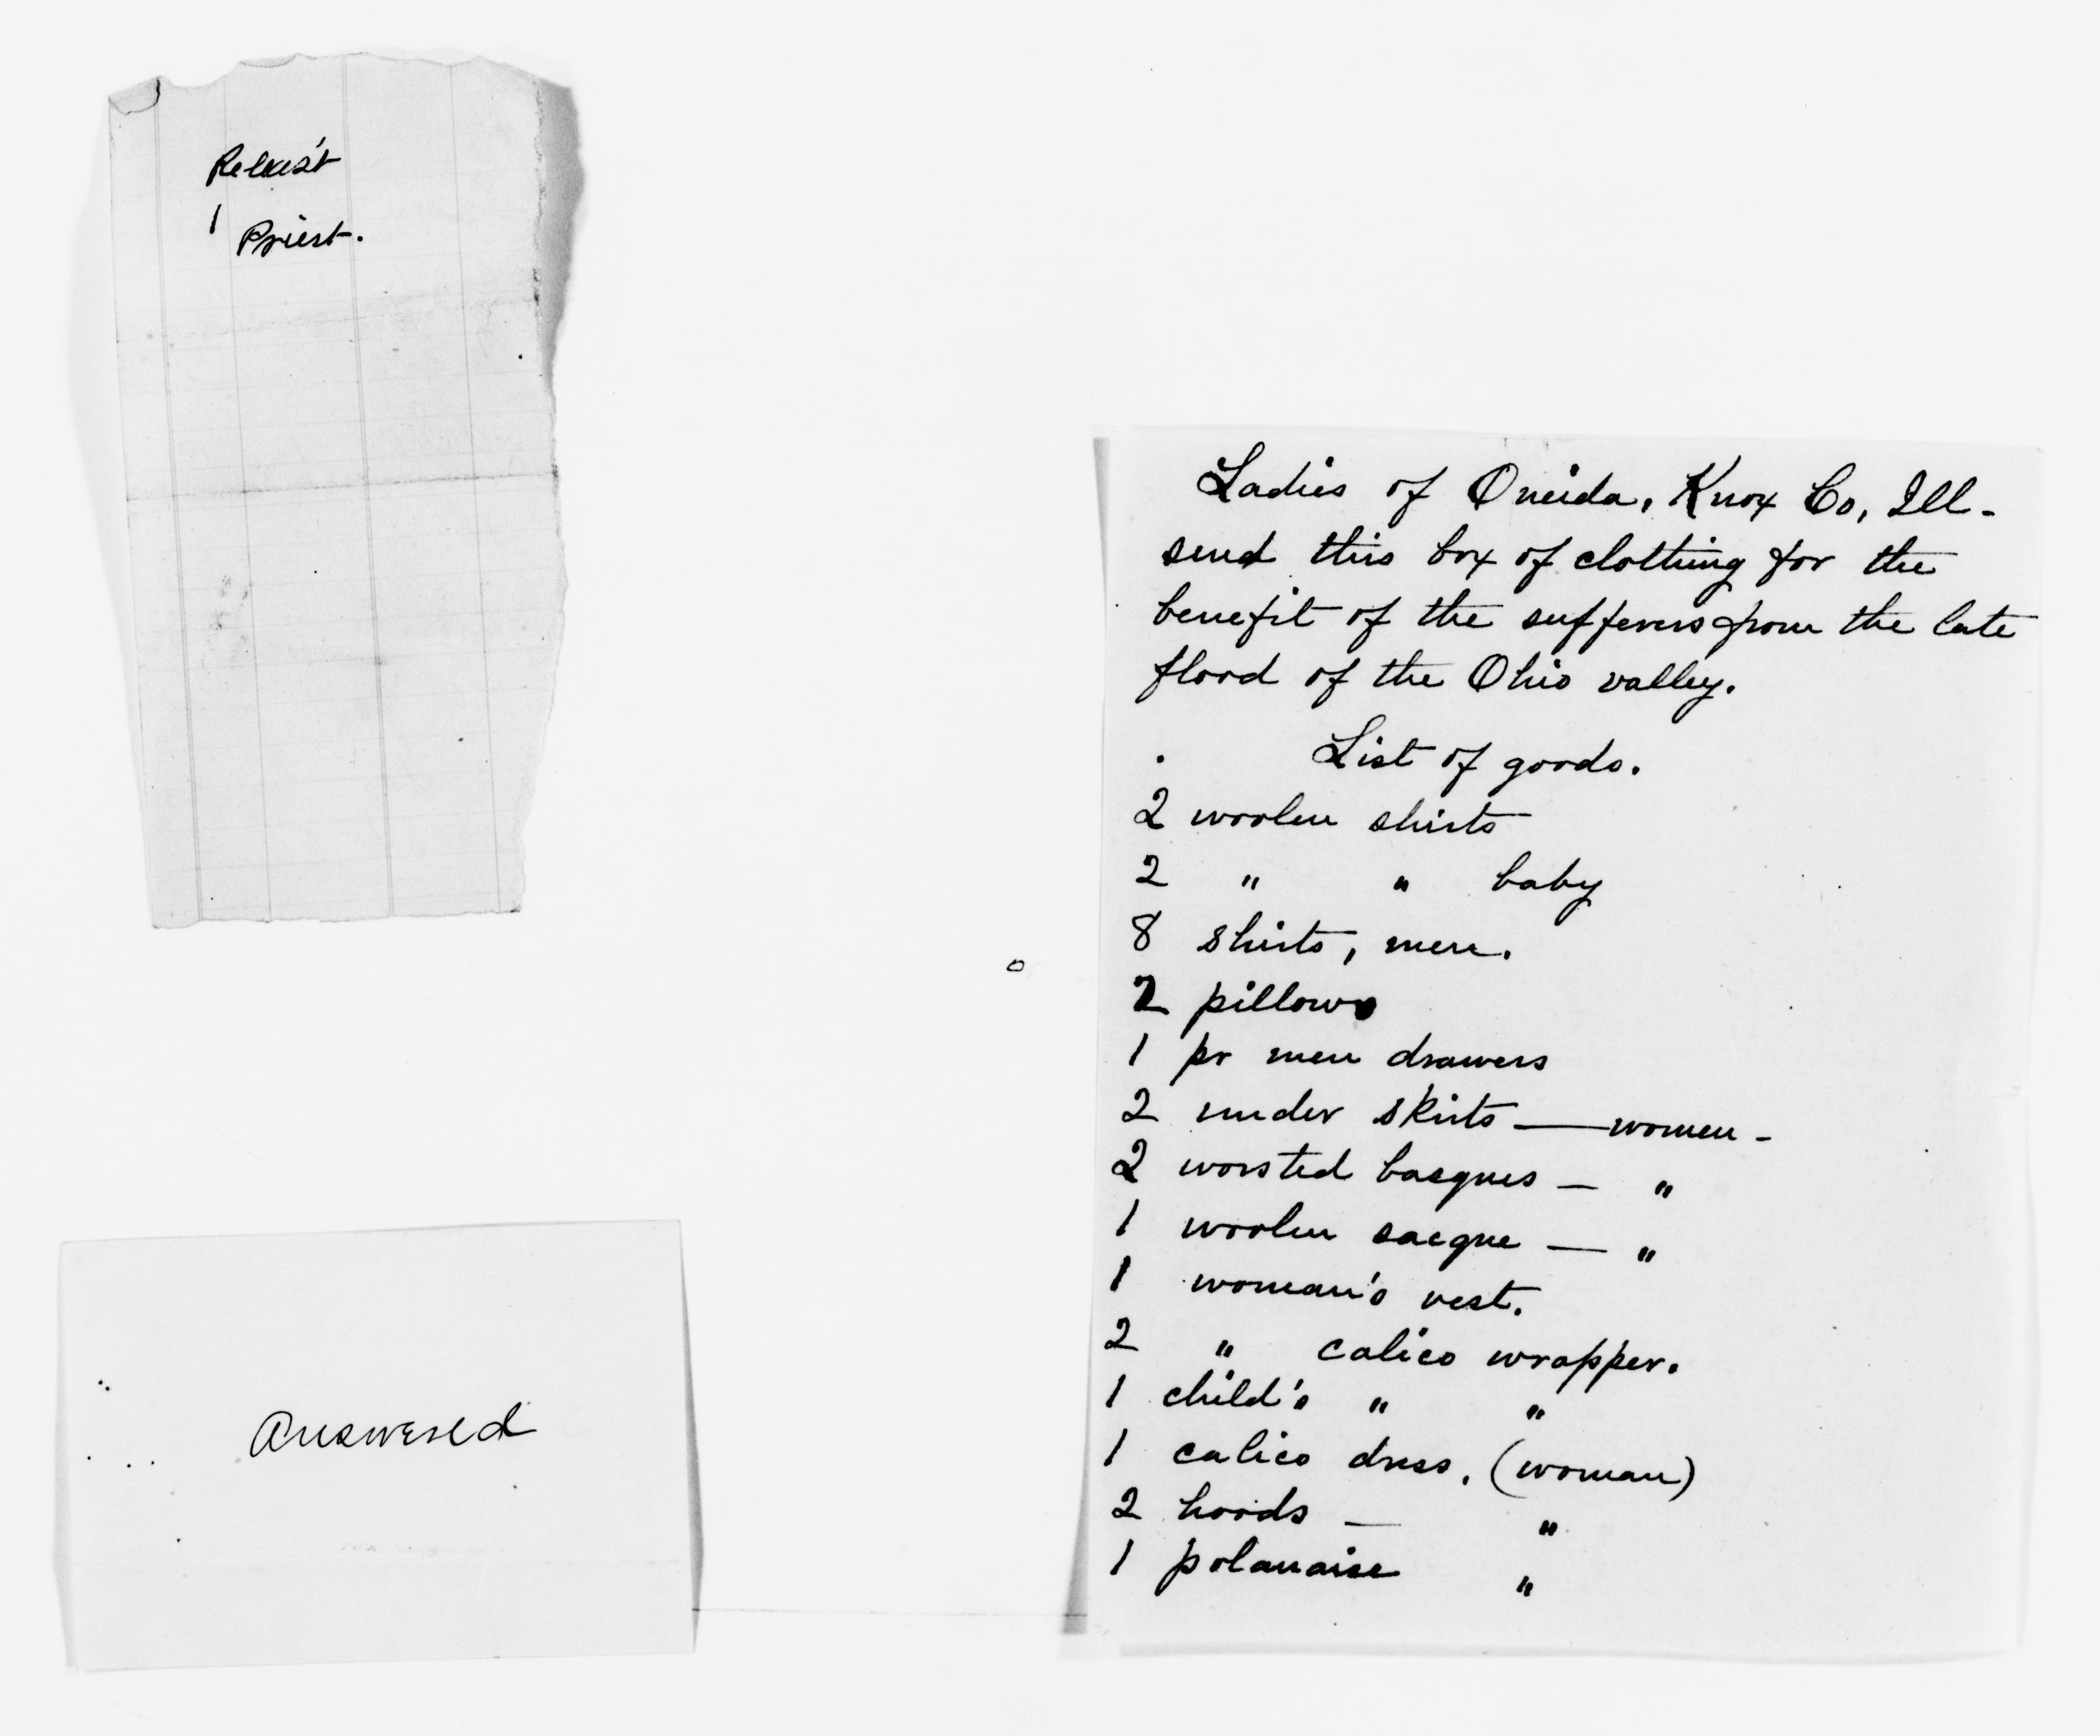 Priest.
Answered
Ladies of Oneida, Knox Co, Ill-
send this box of clothing for the
benefit of the sufferers from the late
flood of the Ohio valley.
List of goods.
2 woolen shirts
2 " " baby
8 shirts, men.
2 pillows
1 pr men drawers
2 under skirts — women -
2 worsted basques — "
1 woolen sacque — "
1 woman's vest.
2 " calico wrapper.
1 child's " "
1 calico dress. (woman)
2 hoods — "
1 polanaise "